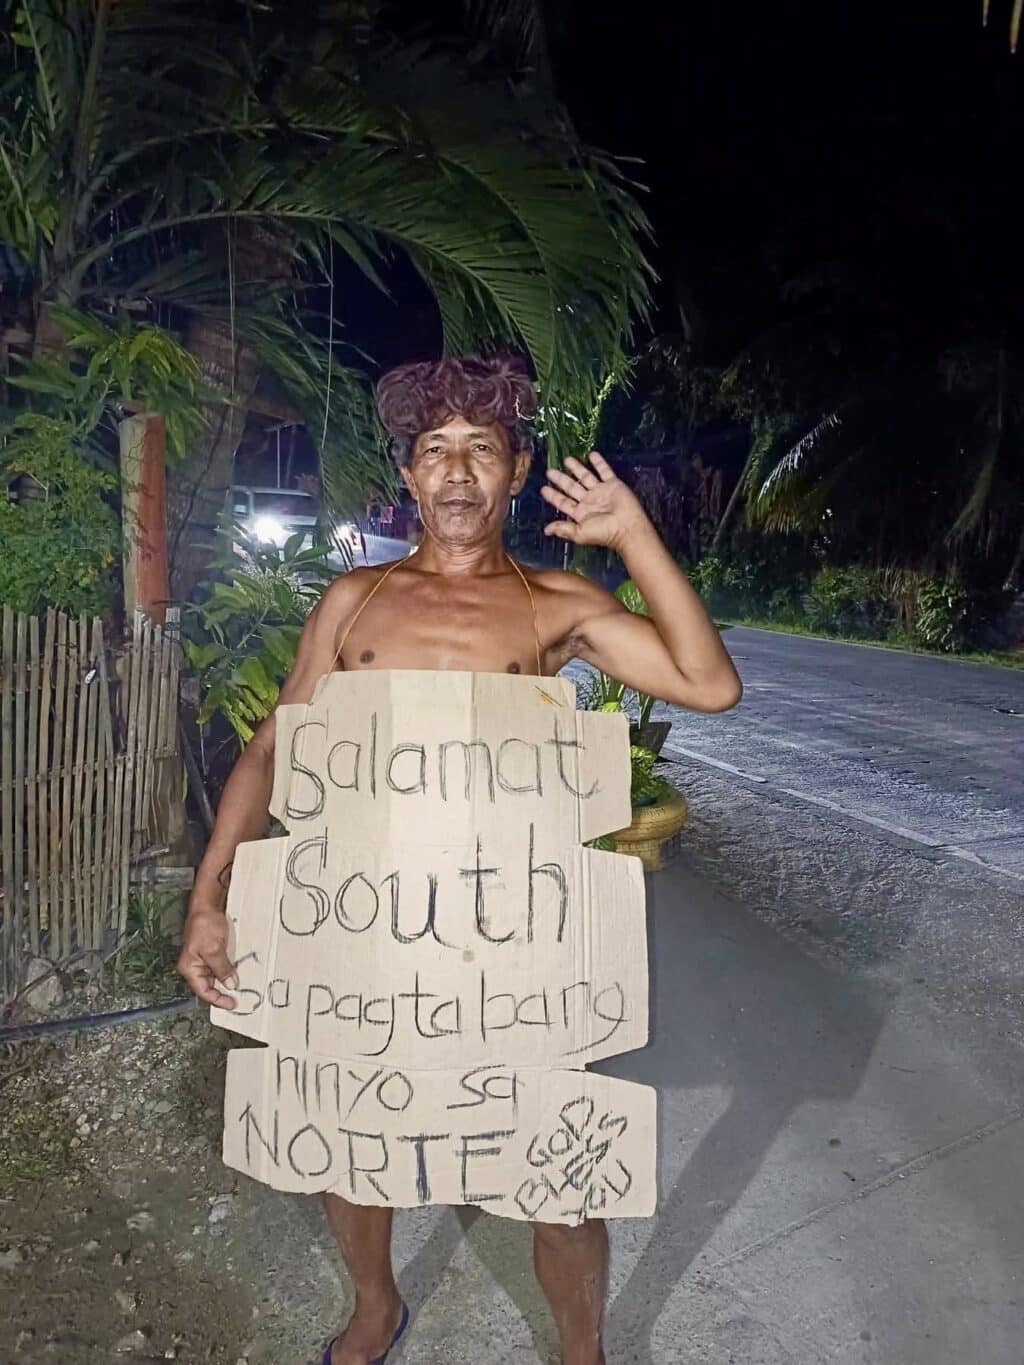 Salamat
South
Sa pagtabang
ninyo sa
NORTE
GOD
BLESS
YOU